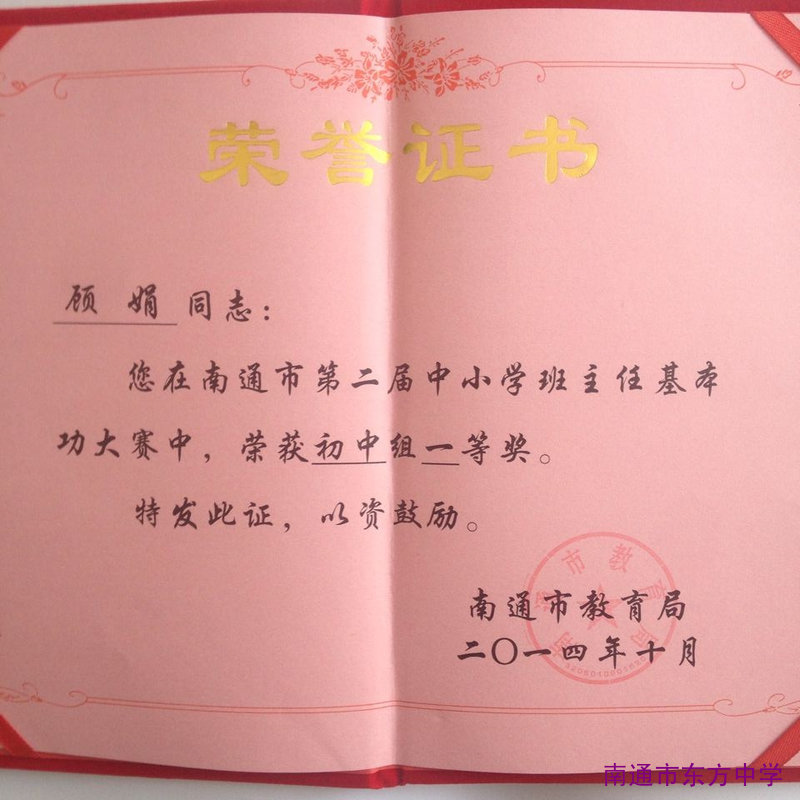 荣誉证书
顾娟同志：
您在南通市第二届中小学班主任基本
功大赛中，荣获初中组一等奖。
特发此证，以资鼓励。
南通市教育局
二〇一四年十月
南通市东方中学